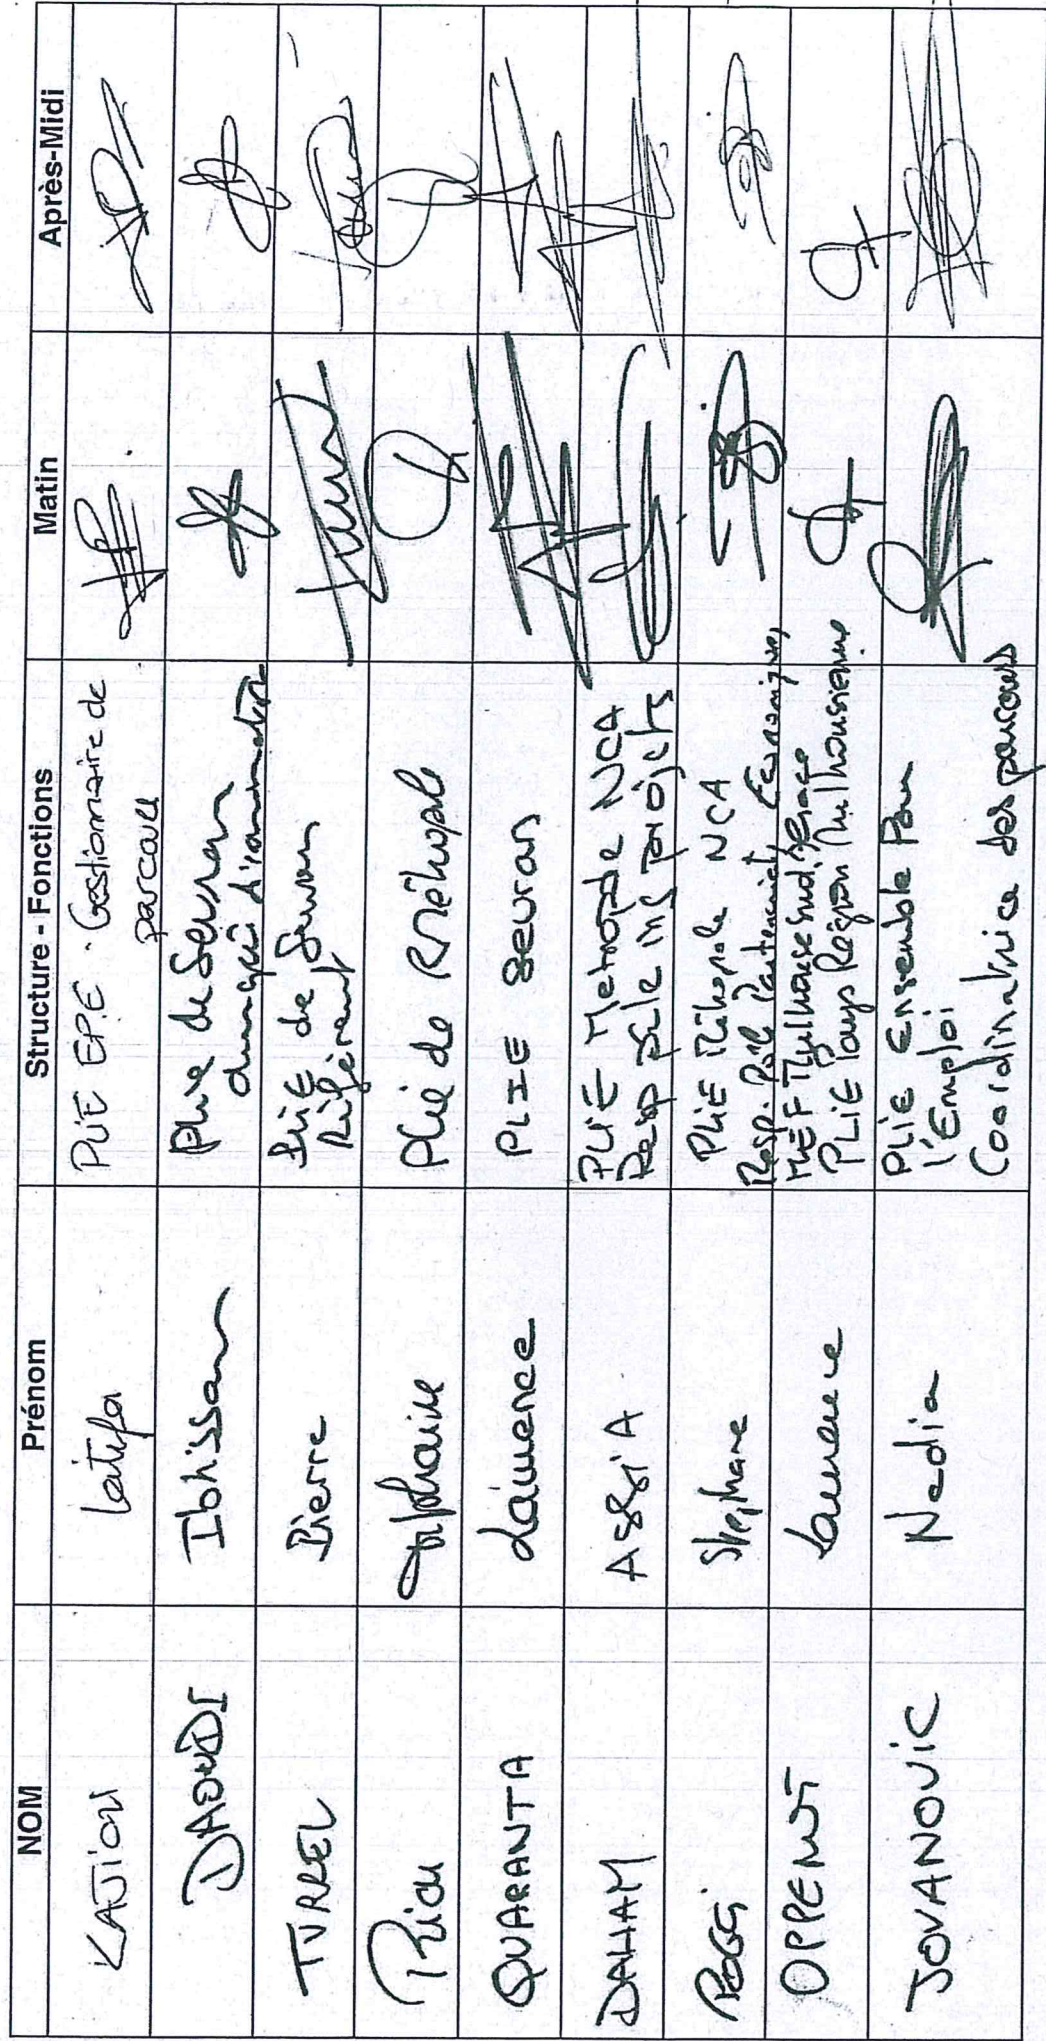 NOM Prénom Structure - Fonctions Matin Après-Midi
KAJIOU Latifa PLIE EPE - Gestionnaire de
parcours
DAOUDI Ibhissam Plie de Sevran
d'animatrice
TURREL Pierre PLIE de Sevran
Référent
Riou Plie de Métropole
QUARANTA Laurence PLIE Sevran
DAHAM ASSiA PLIE Metropole NCA
Resp pole ing projets
POGGi Stephane PLIE Métropole NCA
Resp. Pole Partenariat Economique
OPPENT Laurence MEF Mulhouse Sud Alsace
PLIE Pays Région Mulhousienne
JOVANOViC Nedia PLIE Ensemble Pour
l'Emploi
Coordinatrice des parcours